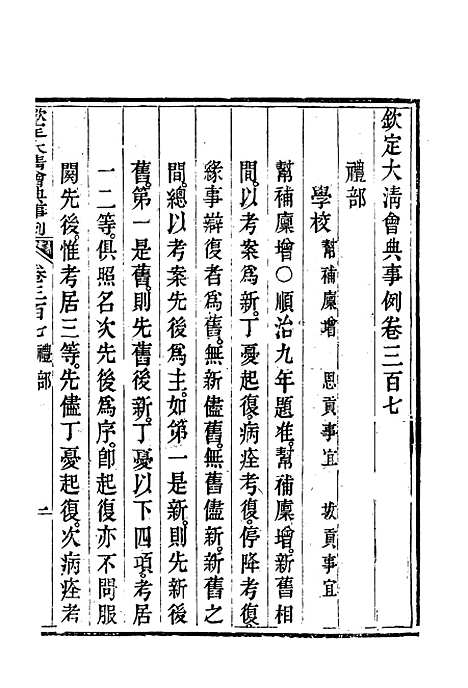 欽定大清會典事例卷三百七
禮部
學校 幫補廩增 恩貢事宜 拔貢事宜
幫補廩增○順治九年題准。幫補廩增。新舊相
間。以考案爲新。丁憂起復。病痊考復。停降考復。
緣事辯復者爲舊。無新儘舊。無舊儘新。新舊之
間。總以考案先後爲主。如第一是新。則先新後
舊。第一是舊。則先舊後新。丁憂以下四項。考居
一二等。俱照名次先後爲序。卽起復亦不問服
闋先後。惟考居三等。先儘丁憂起復。次病痊考
欽定大清會典事例 卷三百七 禮部